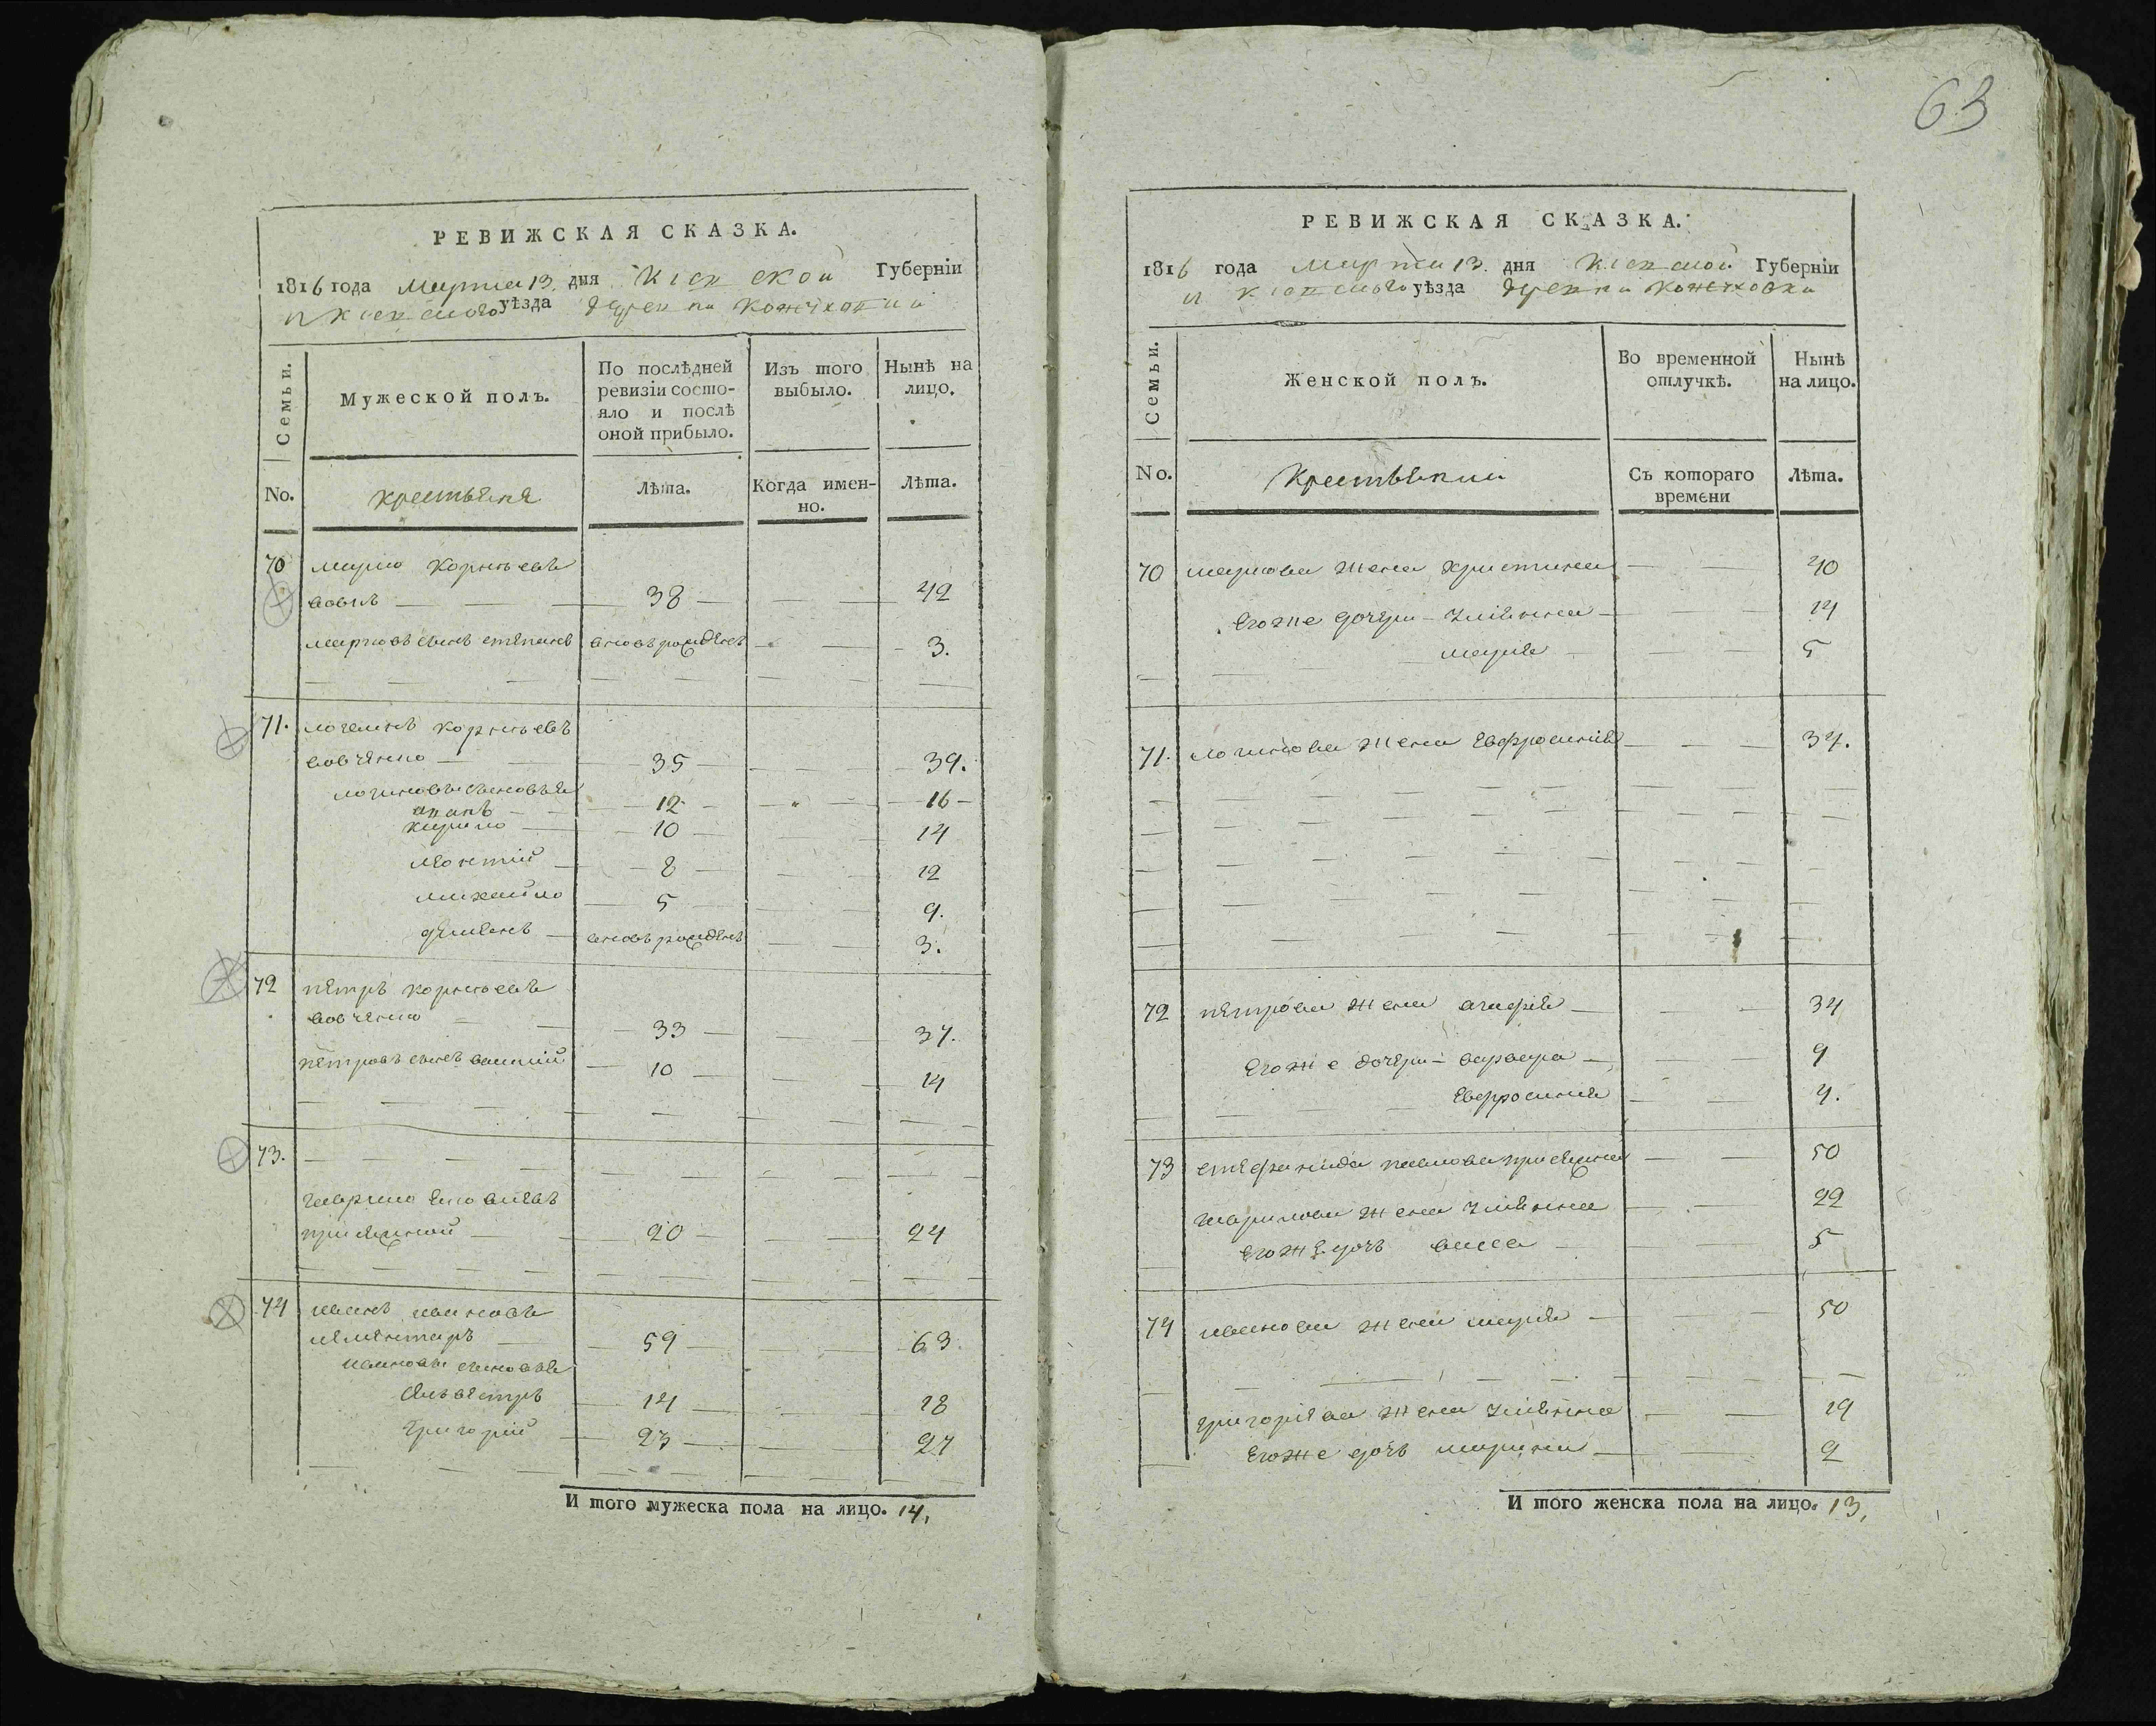 63
РЕВИЖСКАЯ СКАЗКА.
1816 года марта 13. дня Кіевской Губерніи
и Кіевскаго уѣзда деревни Кожуховки
Семьи.
Мужеской полъ.
По послѣдней ревизіи состо-
яло и послѣ
оной прибыло.
Изъ того
выбыло.
Нынѣ на
лицо.
No.
крестьяне
Лѣта.
Когда имен-
но.
Лѣта.
70 марко Корнѣевъ
вовкъ 38 42
марковъ сынъ степанъ вновь рожденъ 3.
71. логвинъ корнѣевъ
вовченко 35 39.
логиновы сыновья
12 16
кирило 10 14
леонтій 8 12
михайло 5 9.
демьянъ вновь рожденъ 3.
72 петръ корнѣевъ
вовченко 33 37.
петровъ сынъ василій 10 14
73.
гаврило
20 24
74 иванъ ивановъ
59 63.
ивановы сыновья
сильвестръ 14 18
григорій 23 27
И того мужеска пола на лицо. 14.
РЕВИЖСКАЯ СКАЗКА.
1816 года марта 13. дня Кіевской Губерніи
и Кіевскаго уѣзда деревни Кожуховки
Семьи.
Женской полъ.
Во временной
отлучкѣ.
Нынѣ
на лицо.
No.
Крестьянки
Съ котораго
времени
Лѣта.
70 маркова жена христина 40
его же дочери 14
марія 5
71. логинова жена Евфросинія 37.
72 петрова жена агафія 34
его же дочери варвара 9
Евфросинія 4.
73 стефанида 50
гаврилова жена 22
его же дочь васса 5
74 иванова жена марія 50
григоріева жена 19
его же дочь марина 2
И того женска пола на лицо. 13.